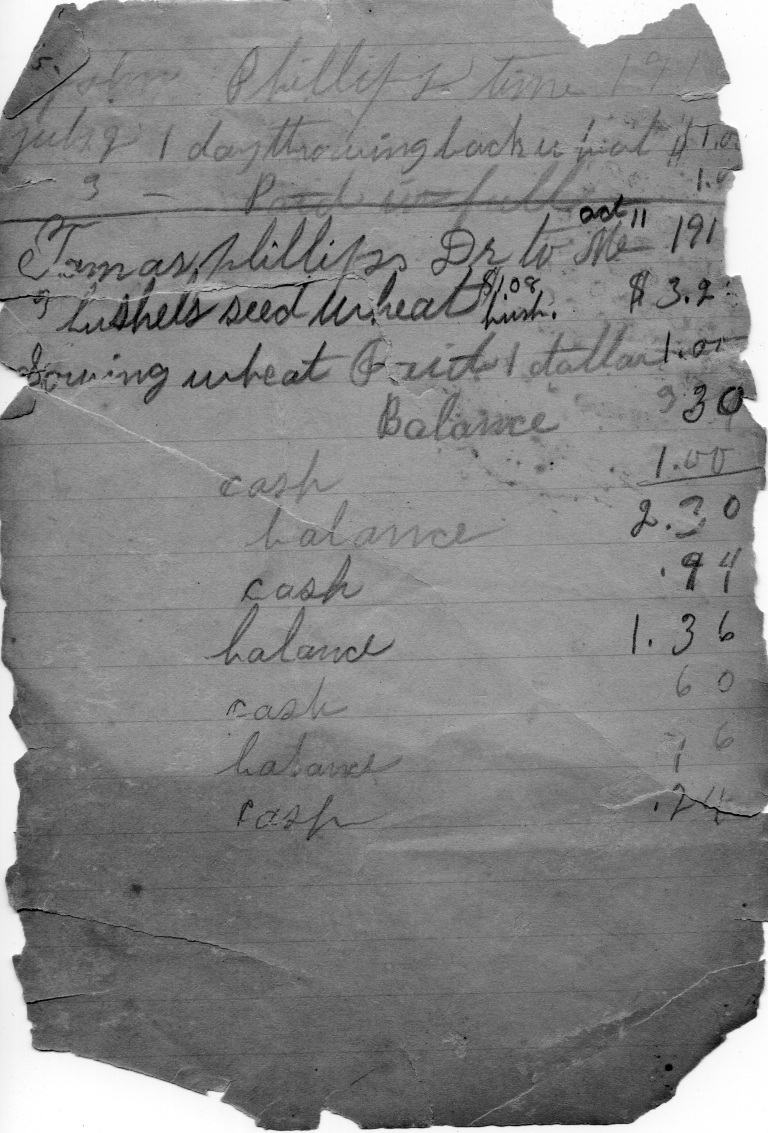 John Phillips time 191
july 9 1 day throwing back wheat $1.0
9 — Paid in full 1.0
Tomas phillips Dr to Me oct 11 191
3 bushels seed wheat $1.08 bush. $3.2
Sowing wheat Paid 1 dollar 1.00
Balance 3 30
cash 1.00
balance 2.30
cash .94
balance 1.36
cash 60
balance 76
cash .24